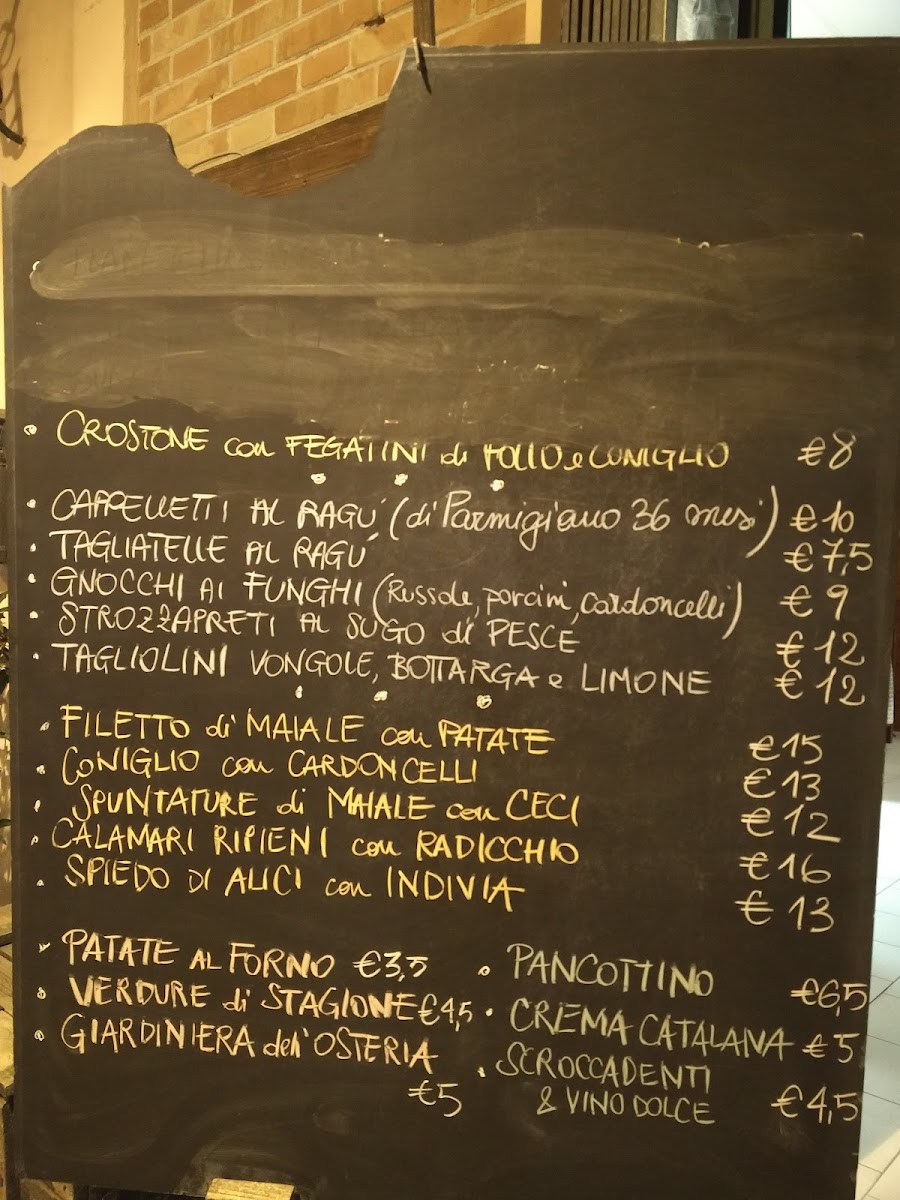 • CROSTONE con FEGATINI di POLLO e CONIGLIO €8
• CAPPELLETTI AL RAGÚ (di Parmigiano 36 mesi) €10
• TAGLIATELLE AL RAGÚ €7,5
• GNOCCHI AI FUNGHI (Russole, porcini, cardoncelli) €9
• STROZZAPRETI AL SUGO di PESCE €12
• TAGLIOLINI VONGOLE, BOTTARGA e LIMONE €12
• FILETTO di MAIALE con PATATE €15
• CONIGLIO con CARDONCELLI €13
• SPUNTATURE di MAIALE con CECI €12
• CALAMARI RIPIENI con RADICCHIO €16
• SPIEDO DI ALICI con INDIVIA €13
• PATATE AL FORNO €3,5
• VERDURE di STAGIONE €4,5
• GIARDINIERA dell'OSTERIA
€5
• PANCOTTINO €6,5
• CREMA CATALANA €5
• SCROCCADENTI
& VINO DOLCE €4,5